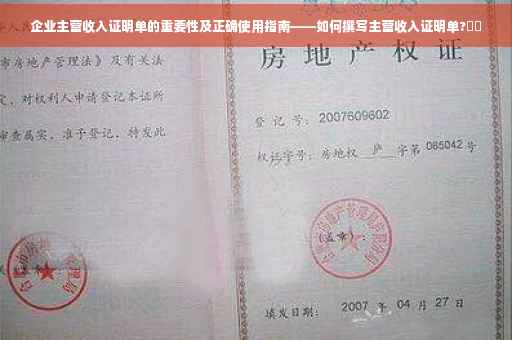 企业主营收入证明单的重要性及正确使用指南——如何撰写主营收入证明单?
市房地产管理法》及有关法
定，对权利人申请登记本证所
审查属实，准予登记，特发此
房地产权证
登记号：2007609602
权证字号：房地权 庐 字第 065042 号
(盖章)：
填发日期：2007 年 04 月 27 日